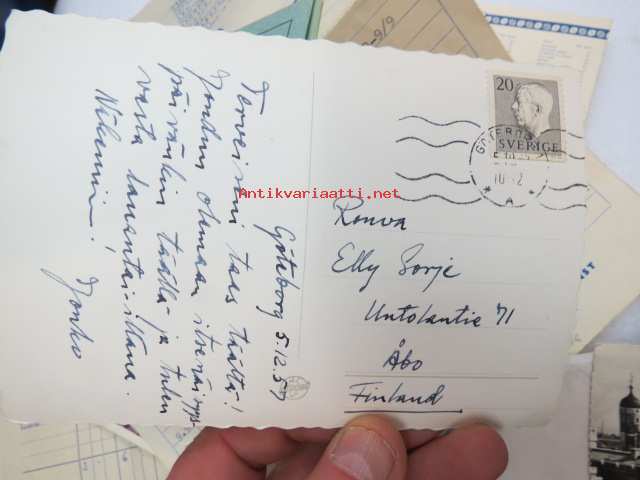 Göteborg 5.12.57
Terveiseni taas täältä!
Joudun olemaan itsenäisyys-
päivänkin täällä ja tulen
vasta lauantai-iltana.
Näkemiin!
Jouko
Rouva
Elly Sorje
Untolantie 71
Åbo
Finland
20
SVERIGE
GÖTEBORG
Antikvariaatti.net
-9/9